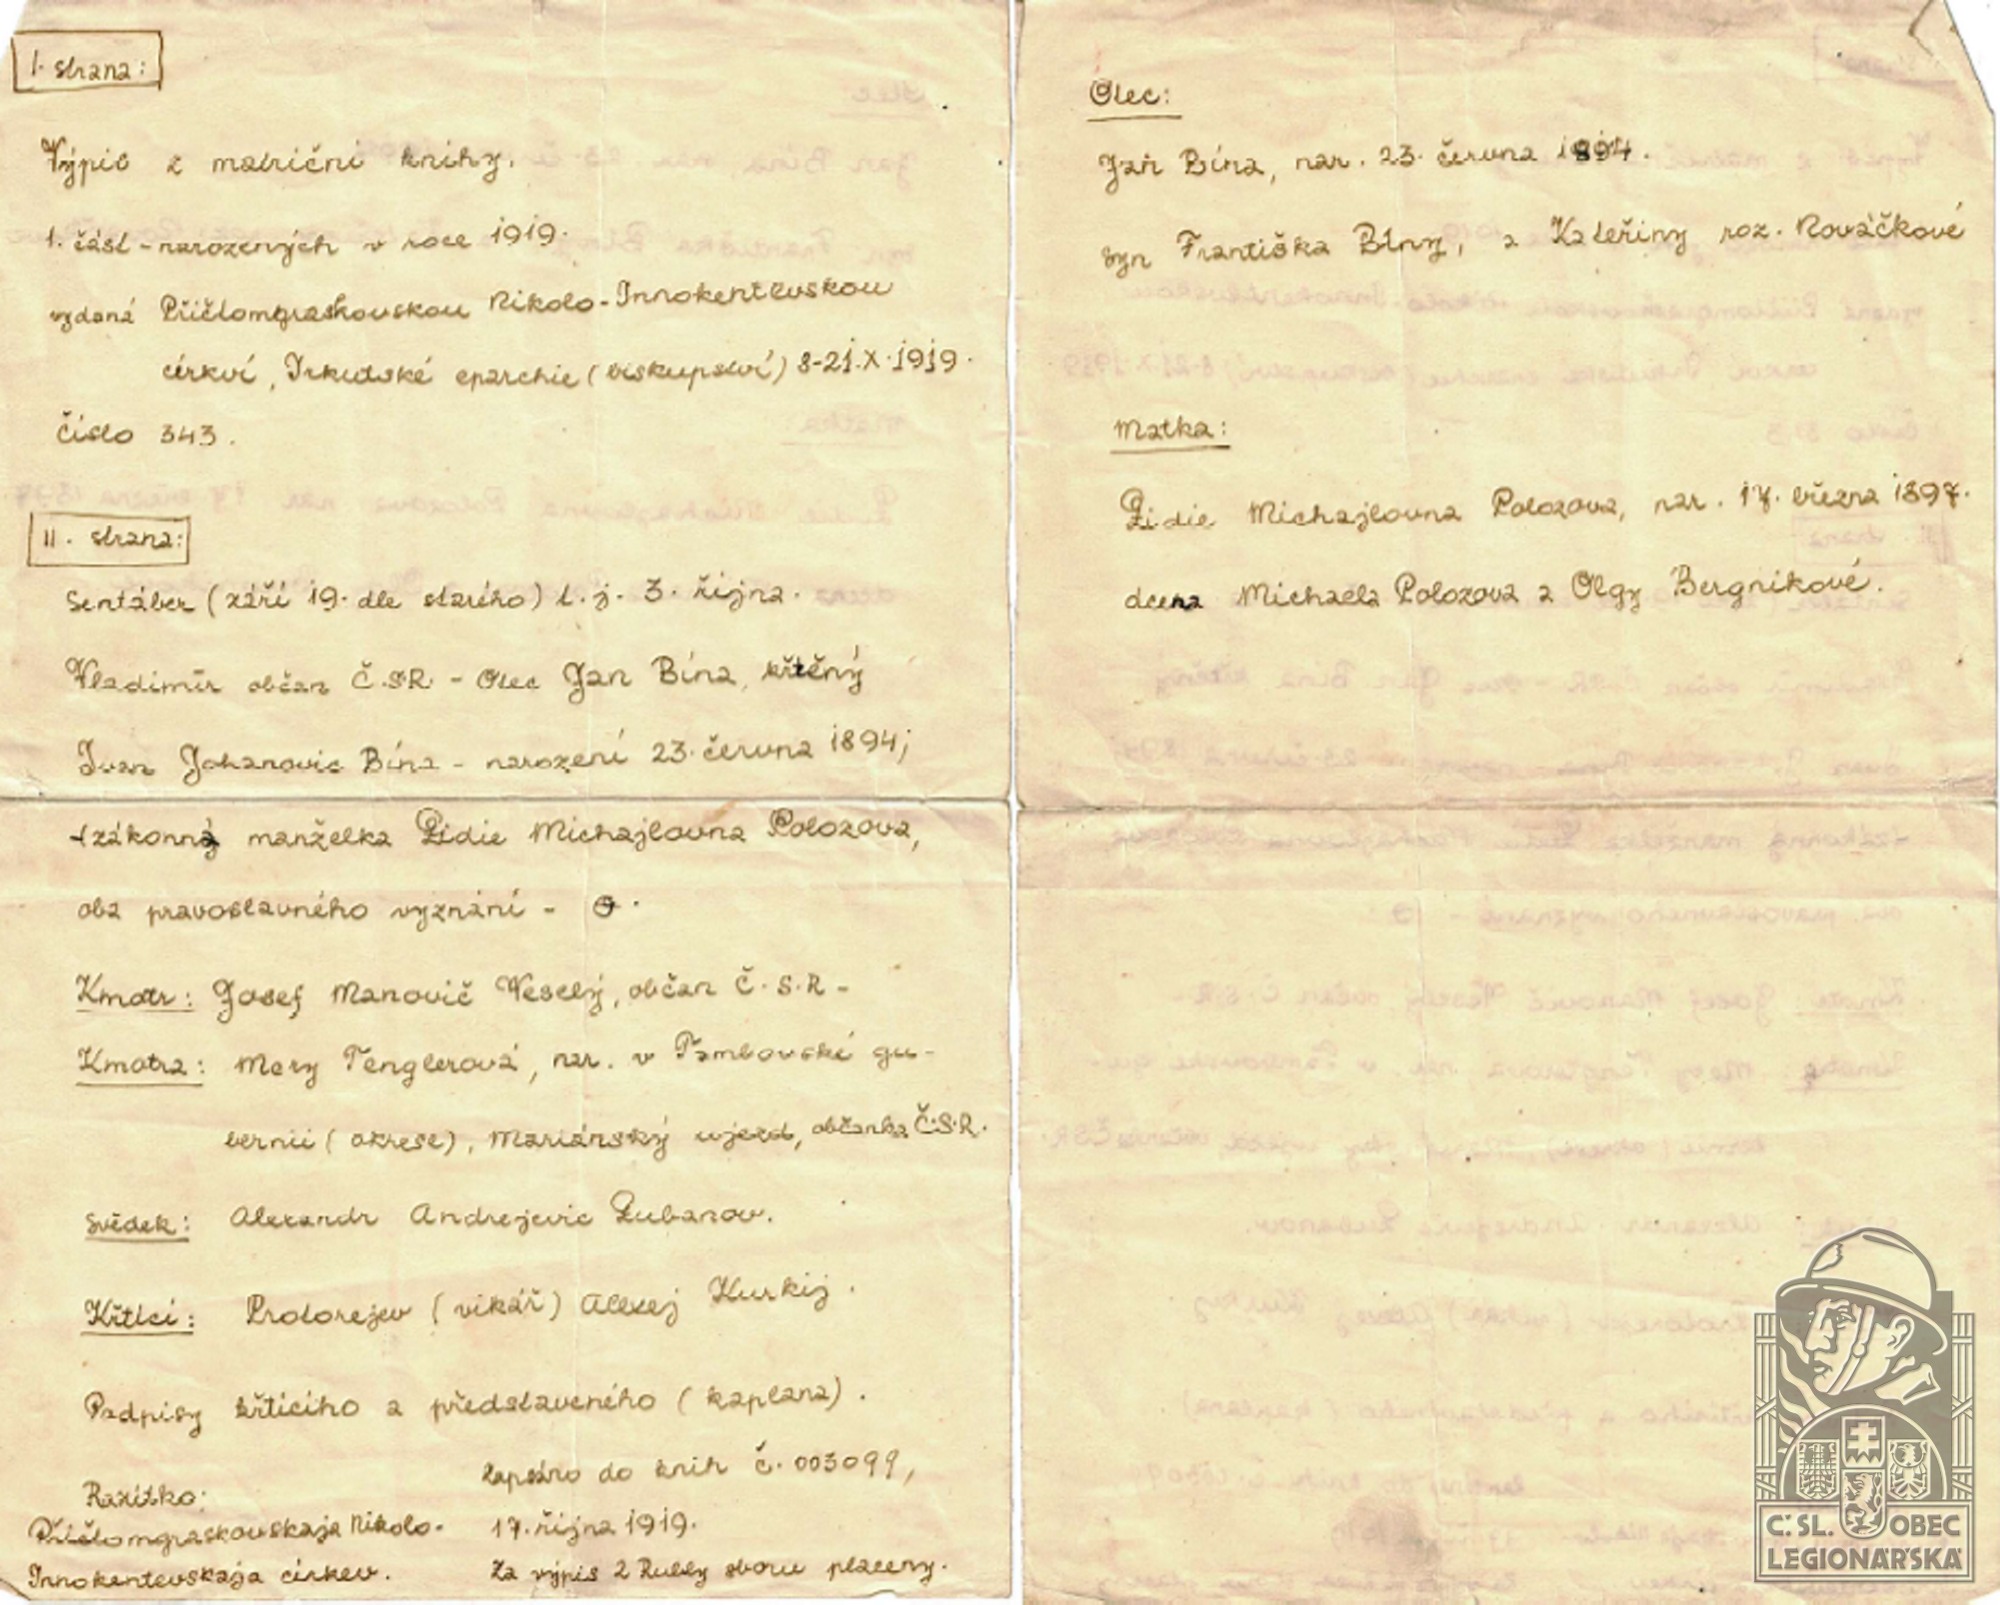 I. strana:
Výpis z matriční knihy.
1. část - narozených v roce 1919.
vydaná Příčlomgraskouskou Nikolo-Innokentevskou
církví, Irkutské eparchie (biskupství) 8-21.X.1919.
Číslo 343.
II. strana:
Sentáber (září 19. dle starého) t. j. 3. října.
Vladimír občan Č.S.R. - Otec Jan Bína, křtěný
Ivan Johanovic Bína - narození 23. června 1894;
zákonná manželka Lidie Michajlovna Polozova,
oba pravoslavného vyznání -
Kmotr: Josef Manovič Veselý, občan Č.S.R -
Kmotra: Mery Tenglerová, nar. v Tambovské gu-
bernii (okrese), Mariánský ujezd, občanka Č.S.R.
Svědek: Alexandr Andrejevic Lubanov.
Křtící: Protorejev (vikář) Alexej Kurkij.
Podpisy křtícího a představeného (kaplana).
Zapsáno do knih č. 003099,
Razítko:
Příčlomgraskouskaja Nikolo- 17. října 1919.
Innokentevskaja církev. Za výpis 2 Rubly sboru placeny.
Otec:
Jan Bína, nar. 23. června 1894.
syn Františka Bíny, a Kateřiny roz. Nováčkové
Matka:
Lidie Michajlovna Polozova, nar. 17. března 1897.
dcera Michaela Polozova a Olgy Bergnikové.
Č:SL. OBEC
LEGIONÁŘSKÁ